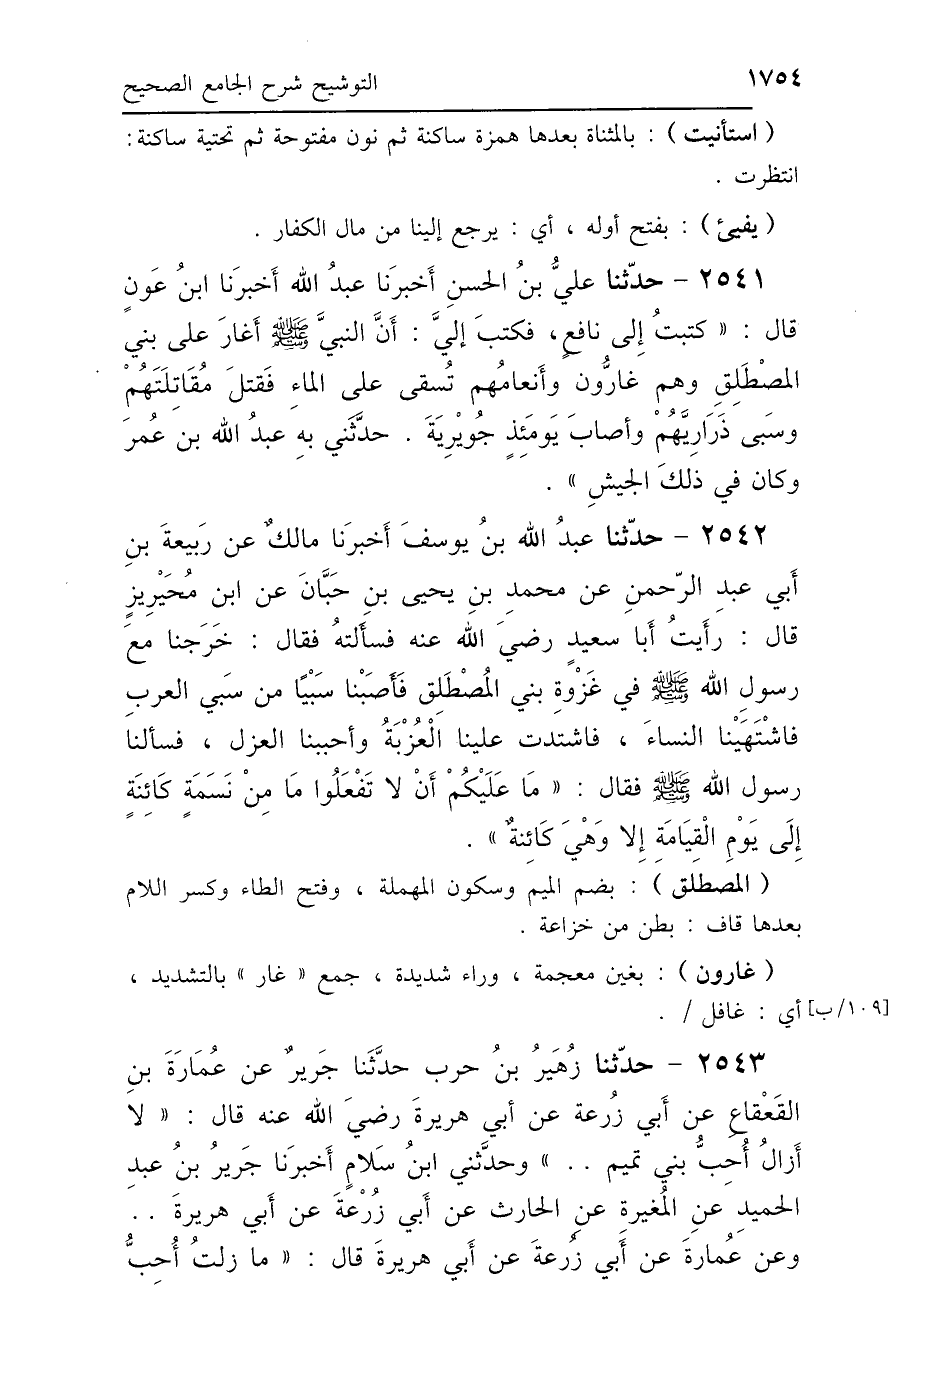 ١٧٥٤
التوشيح شرح الجامع الصحيح
( استأنيت ) : بالمثناة بعدها همزة ساكنة ثم نون مفتوحة ثم تحتية ساكنة :
انتظرت .
( يفيئ ) : بفتح أوله ، أي : يرجع إلينا من مال الكفار .
٢٥٤١ - حدّثنا عليُّ بنُ الحسنِ أخبرَنا عبدُ الله أخبرَنا ابنُ عَونٍ
قال : « كتبتُ إلى نافعٍ، فكتبَ إليَّ : أنَّ النبيَّ ﷺ أغارَ على بني
المصْطَلِقِ وهم غارُّون وأنعامُهم تُسقى على الماء فَقتلَ مُقَاتلَتَهُمْ
وسَبَى ذَرَارِيَّهُمْ وأصابَ يَومَئذٍ جُوَيْرِيَةَ . حدَّثَني بهِ عبدُ الله بن عُمرَ
وكان في ذلكَ الجيشِ » .
٢٥٤٢ - حدّثنا عبدُ الله بنُ يوسفَ أخبرَنا مالكٌ عن رَبيعةَ بنِ
أبي عبدِ الرّحمنِ عن محمدِ بنِ يحيى بنِ حَبَّانَ عن ابن مُحَيْرِيزٍ
قال : رأَيتُ أبا سعيدٍ رضيَ الله عنه فسألتهُ فقال : خَرَجنا معَ
رسولِ الله ﷺ في غَزْوةِ بني المُصْطَلِق فَأَصَبْنا سَبْيًا من سَبي العربِ
فاشْتَهَيْنا النساءَ ، فاشتدت علينا الْعُزْبَةُ وأحببنا العزل ، فسألنا
رسول الله ﷺ فقال : « مَا عَلَيْكُمْ أَنْ لا تَفْعَلُوا مَا مِنْ نَسَمَةٍ كَائِنَةٍ
إِلَى يَوْمِ الْقِيَامَةِ إلا وَهْيَ كَائِنةٌ » .
( المصطلق ) : بضم الميم وسكون المهملة ، وفتح الطاء وكسر اللام
بعدها قاف : بطن من خزاعة .
( غارون ) : بغين معجمة ، وراء شديدة ، جمع « غار » بالتشديد ،
[١٠٩/ب] أي : غافل / .
٢٥٤٣ - حدّثنا زُهَيرُ بنُ حرب حدَّثَنا جَريرٌ عن عُمَارَةَ بنِ
القَعْقاعِ عن أَبي زُرعة عن أبي هريرةَ رضيَ الله عنه قال : « لا
أزالُ أُحبُّ بني تميم .. » وحدَّثني ابنُ سَلامٍ أخبرَنا جَريرُ بنُ عبدِ
الحميدِ عنِ المُغيرةِ عنِ الحارث عن أَبي زُرْعةَ عن أَبي هريرةَ ..
وعن عُمارةَ عن أَبي زُرعةَ عن أَبي هريرةَ قال : « ما زلتُ أُحِبُّ